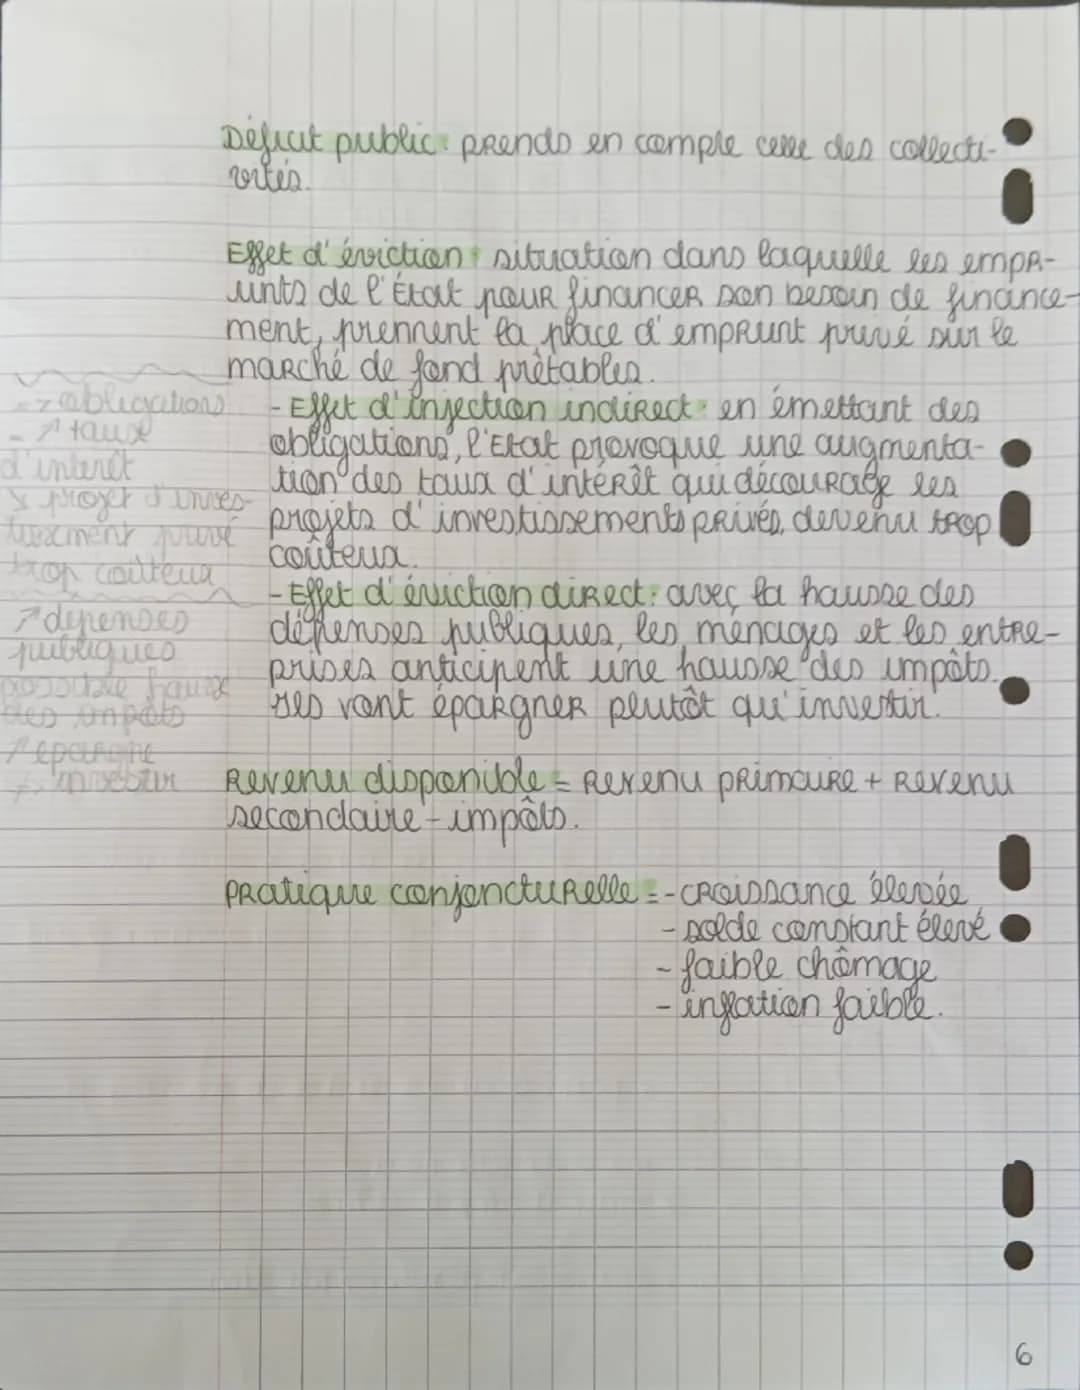 Déficit public : prends en comple celle des collecti-
vités.
Effet d'éviction : situation dans laquelle les empr-
unts de l'État pour financer son besoin de finance-
ment, prennent la place d'emprunt privé sur le
marché de fond prêtables.
- Effet d'injection indirect : en émettant des
obligations, l'Etat provoque une augmenta-
tion des taux d'intérêt qui décourage les
projets d'investissements privés, devenu trop
coûteux.
- Effet d'éviction direct : avec la hausse des
dépenses publiques, les ménages et les entre-
prises anticipent une hausse des impôts.
Ils vont épargner plutôt qu'investir.
→ obligations
- ↗ taux
d'intérêt
↘ projet d'inves-
tissement privé
trop coûteux
↗ dépenses
publiques
possible hausse
des impôts
↗ épargne
investir
Revenu disponible = Revenu primaire + Revenu
secondaire - impôts.
Pratique conjoncturelle = - croissance élevée
- solde constant élevé
- faible chômage
- inflation faible.
6